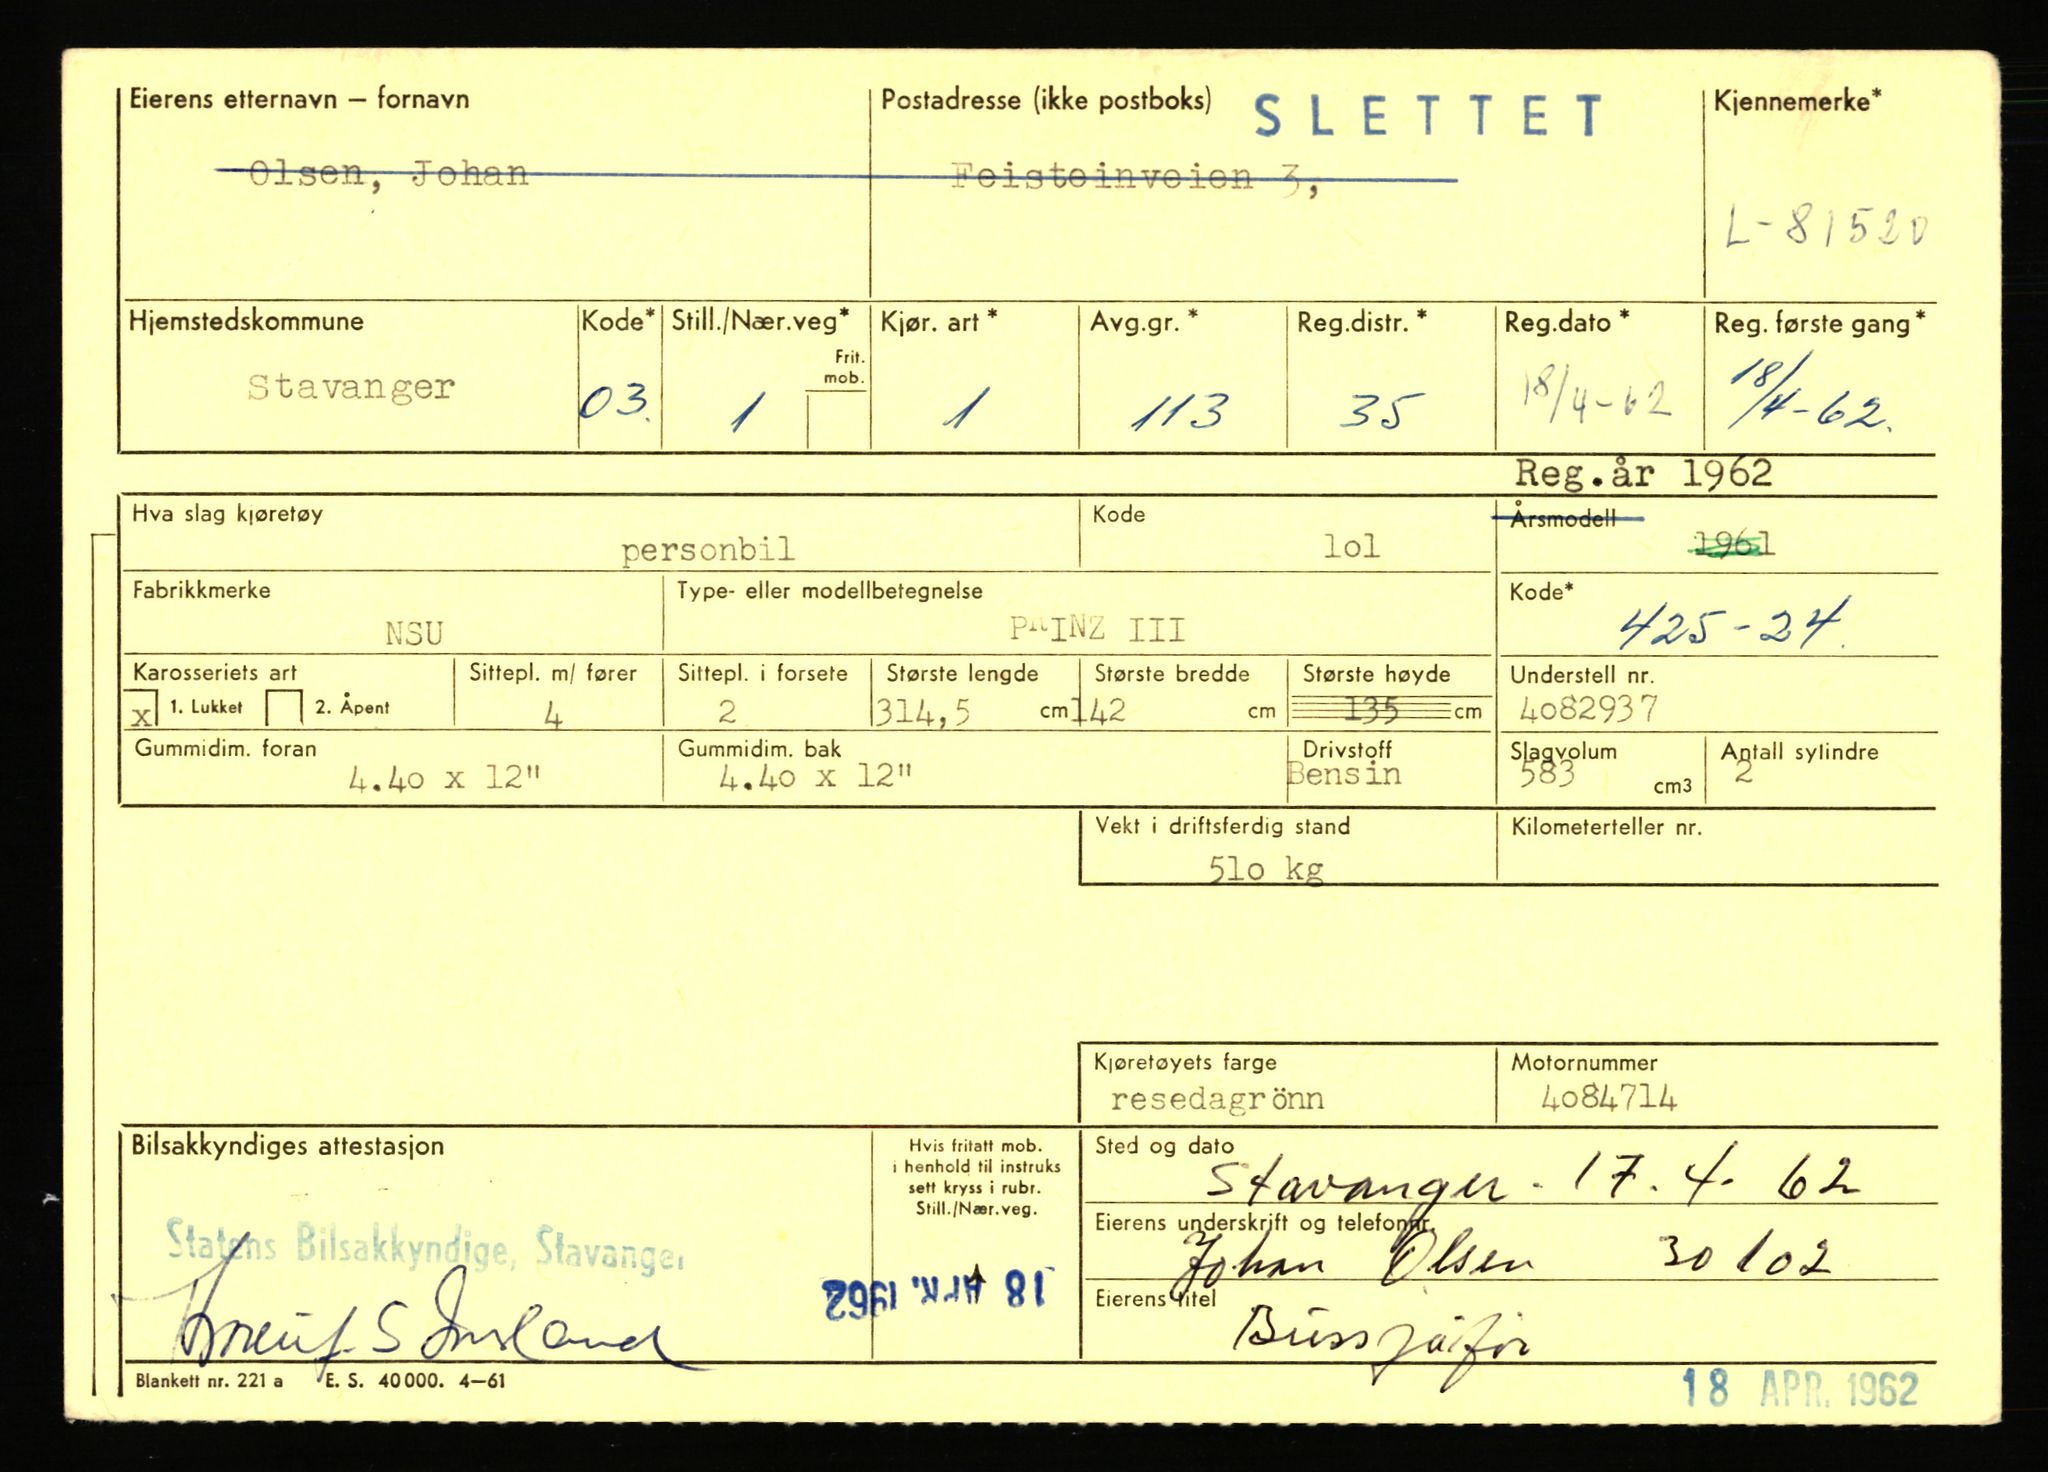 Eierens etternavn – fornavn
Postadresse (ikke postboks)
SLETTET
Kjennemerke*
Olsen, Johan
Feisteinveien 3,
L-81520
Hjemstedskommune
Kode*
Still./Nær.veg*
Frit. mob.
Kjør. art *
Avg.gr. *
Reg.distr. *
Reg.dato *
Reg. første gang *
Stavanger
03.
1
1
113
35
18/4-62
18/4-62.
Reg.år 1962
Hva slag kjøretøy
personbil
Kode
lol
Årsmodell
1961
Fabrikkmerke
NSU
Type- eller modellbetegnelse
PRINZ III
Kode*
425-24.
Karosseriets art
x 1. Lukket 2. Åpent
Sittepl. m/ fører
4
Sittepl. i forsete
2
Største lengde
314,5 cm
Største bredde
142 cm
Største høyde
135 cm
Understell nr.
4o82937
Gummidim. foran
4.4o x 12"
Gummidim. bak
4.4o x 12"
Drivstoff
Bensin
Slagvolum
583 cm3
Antall sylindre
2
Vekt i driftsferdig stand
51o kg
Kilometerteller nr.
Kjøretøyets farge
resedagrönn
Motornummer
4o84714
Bilsakkyndiges attestasjon
Statens Bilsakkyndige, Stavanger
Hvis fritatt mob.
i henhold til instruks
sett kryss i rubr.
Still./Nær.veg.
18 APR. 1962
Sted og dato
Stavanger. 17.4. 62
Eierens underskrift og telefonnr.
Johan Olsen 30102
Eierens titel
Blankett nr. 221 a E. S. 40 000. 4–61
18 APR. 1962